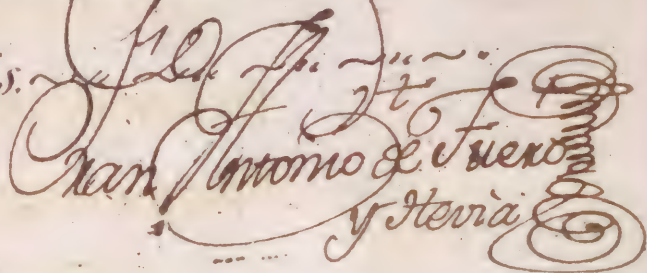 Fran Antonio de Fuero
y Hevia